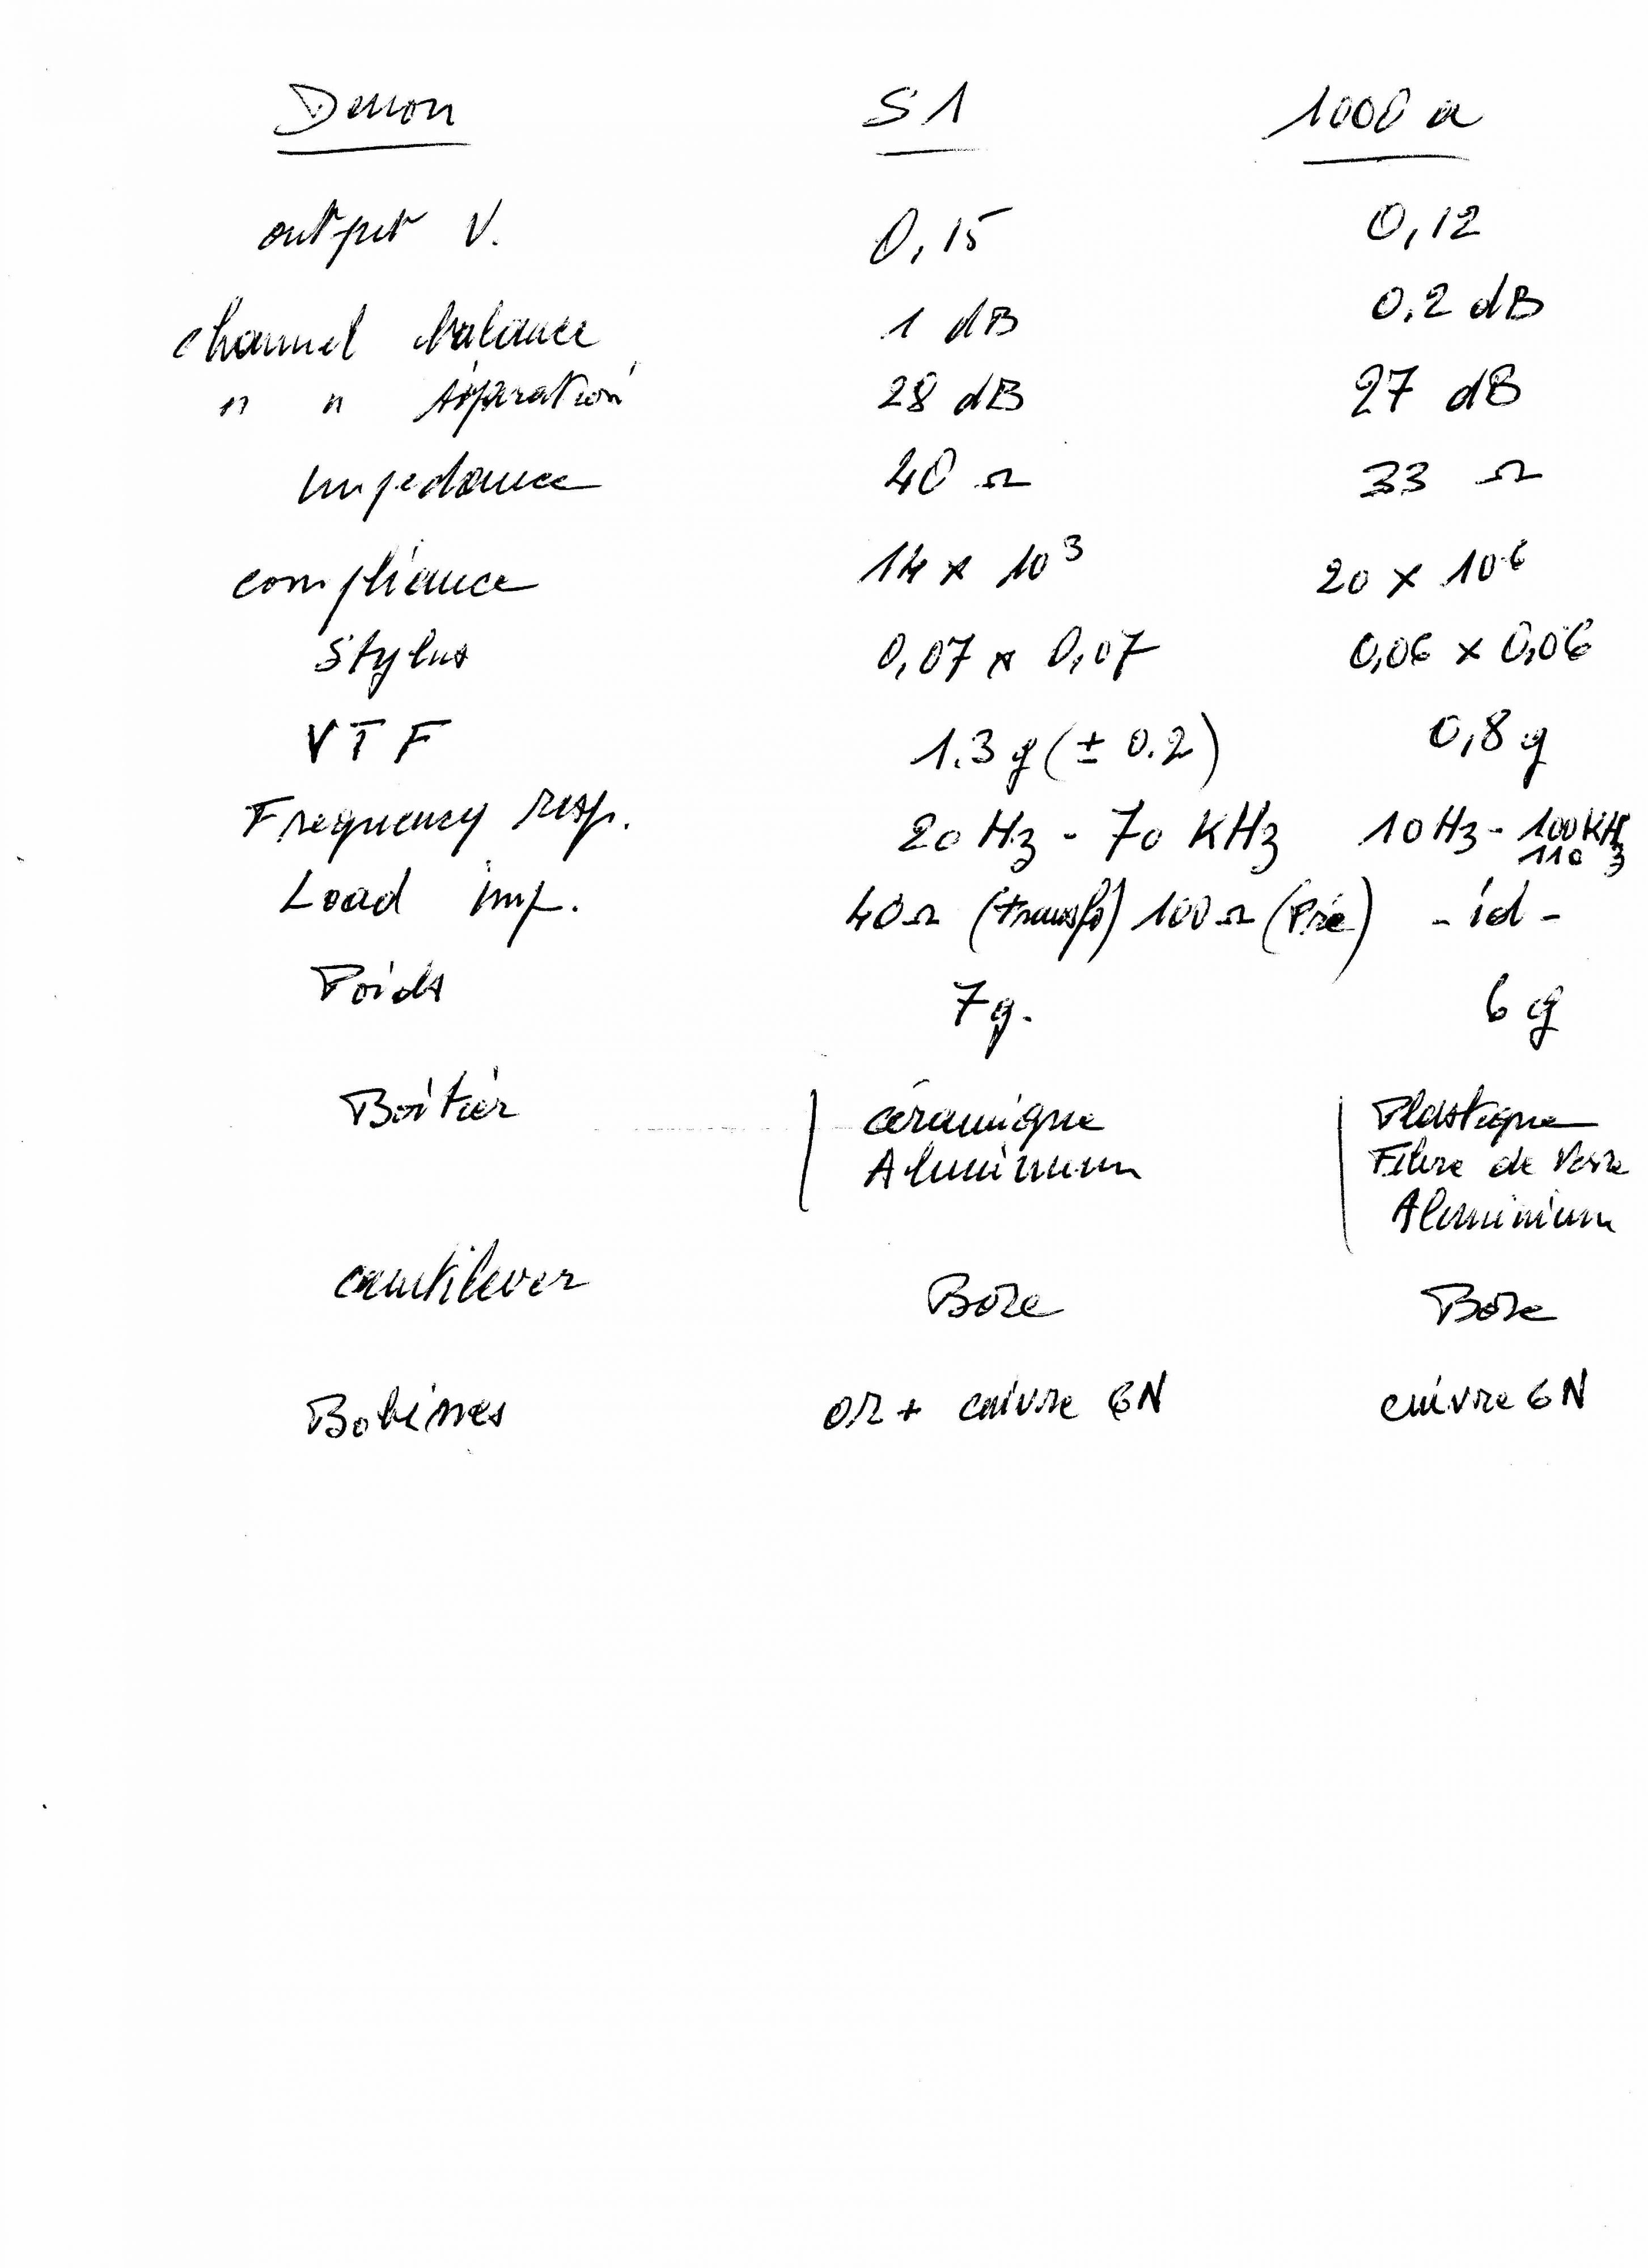 Denon S1 1000 a
output V. 0,15 0,12
channel balance 1 dB 0.2 dB
" " séparation 28 dB 27 dB
Impedance 40 Ω 33 Ω
compliance 14 x 10³ 20 x 10⁶
Stylus 0,07 x 0,07 0,06 x 0,06
VTF 1.3 g (± 0.2) 0,8 g
Frequency resp. 20 Hz - 70 KHz 10 Hz - 100 KHz
110
Load imp. 40 Ω (transfo) 100 Ω (Pré) - id -
Poids 7g. 6 g
Boitier céramique Plastique
Aluminium Fibre de Verre
Aluminium
cantilever Bore Bore
Bobines or + cuivre 6N cuivre 6N